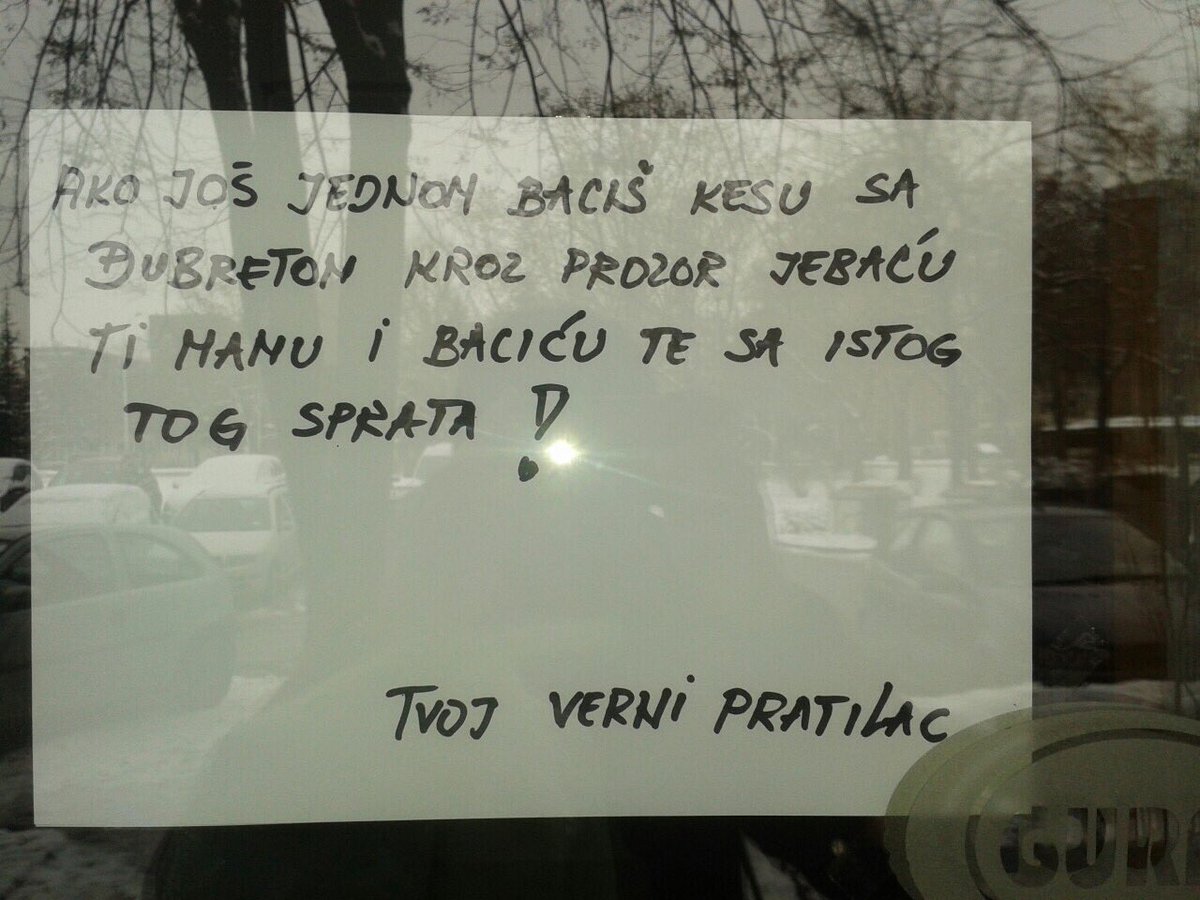 AKO JOŠ JEDNOM BACIŠ KESU SA
ĐUBRETOM KROZ PROZOR JEBAĆU
TI MAMU I BACIĆU TE SA ISTOG
TOG SPRATA !
TVOJ VERNI PRATILAC
GURA